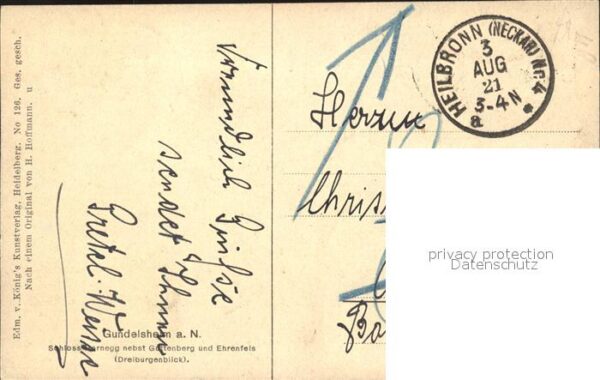 Edm. v. König's Kunstverlag, Heidelberg. No 126. Ges. gesch.
Nach einem Original von H. Hoffmann. u
Freundlich Grüsse
sendet Ihnen
Gretel
Gundelsheim a. N.
Schloss Hornegg nebst Guttenberg und Ehrenfels
(Dreiburgenblick).
HEILBRONN (NECKAR) Nr. 4
3
AUG
21
3-4 N
a
Herrn
Chris
privacy protection
Datenschutz